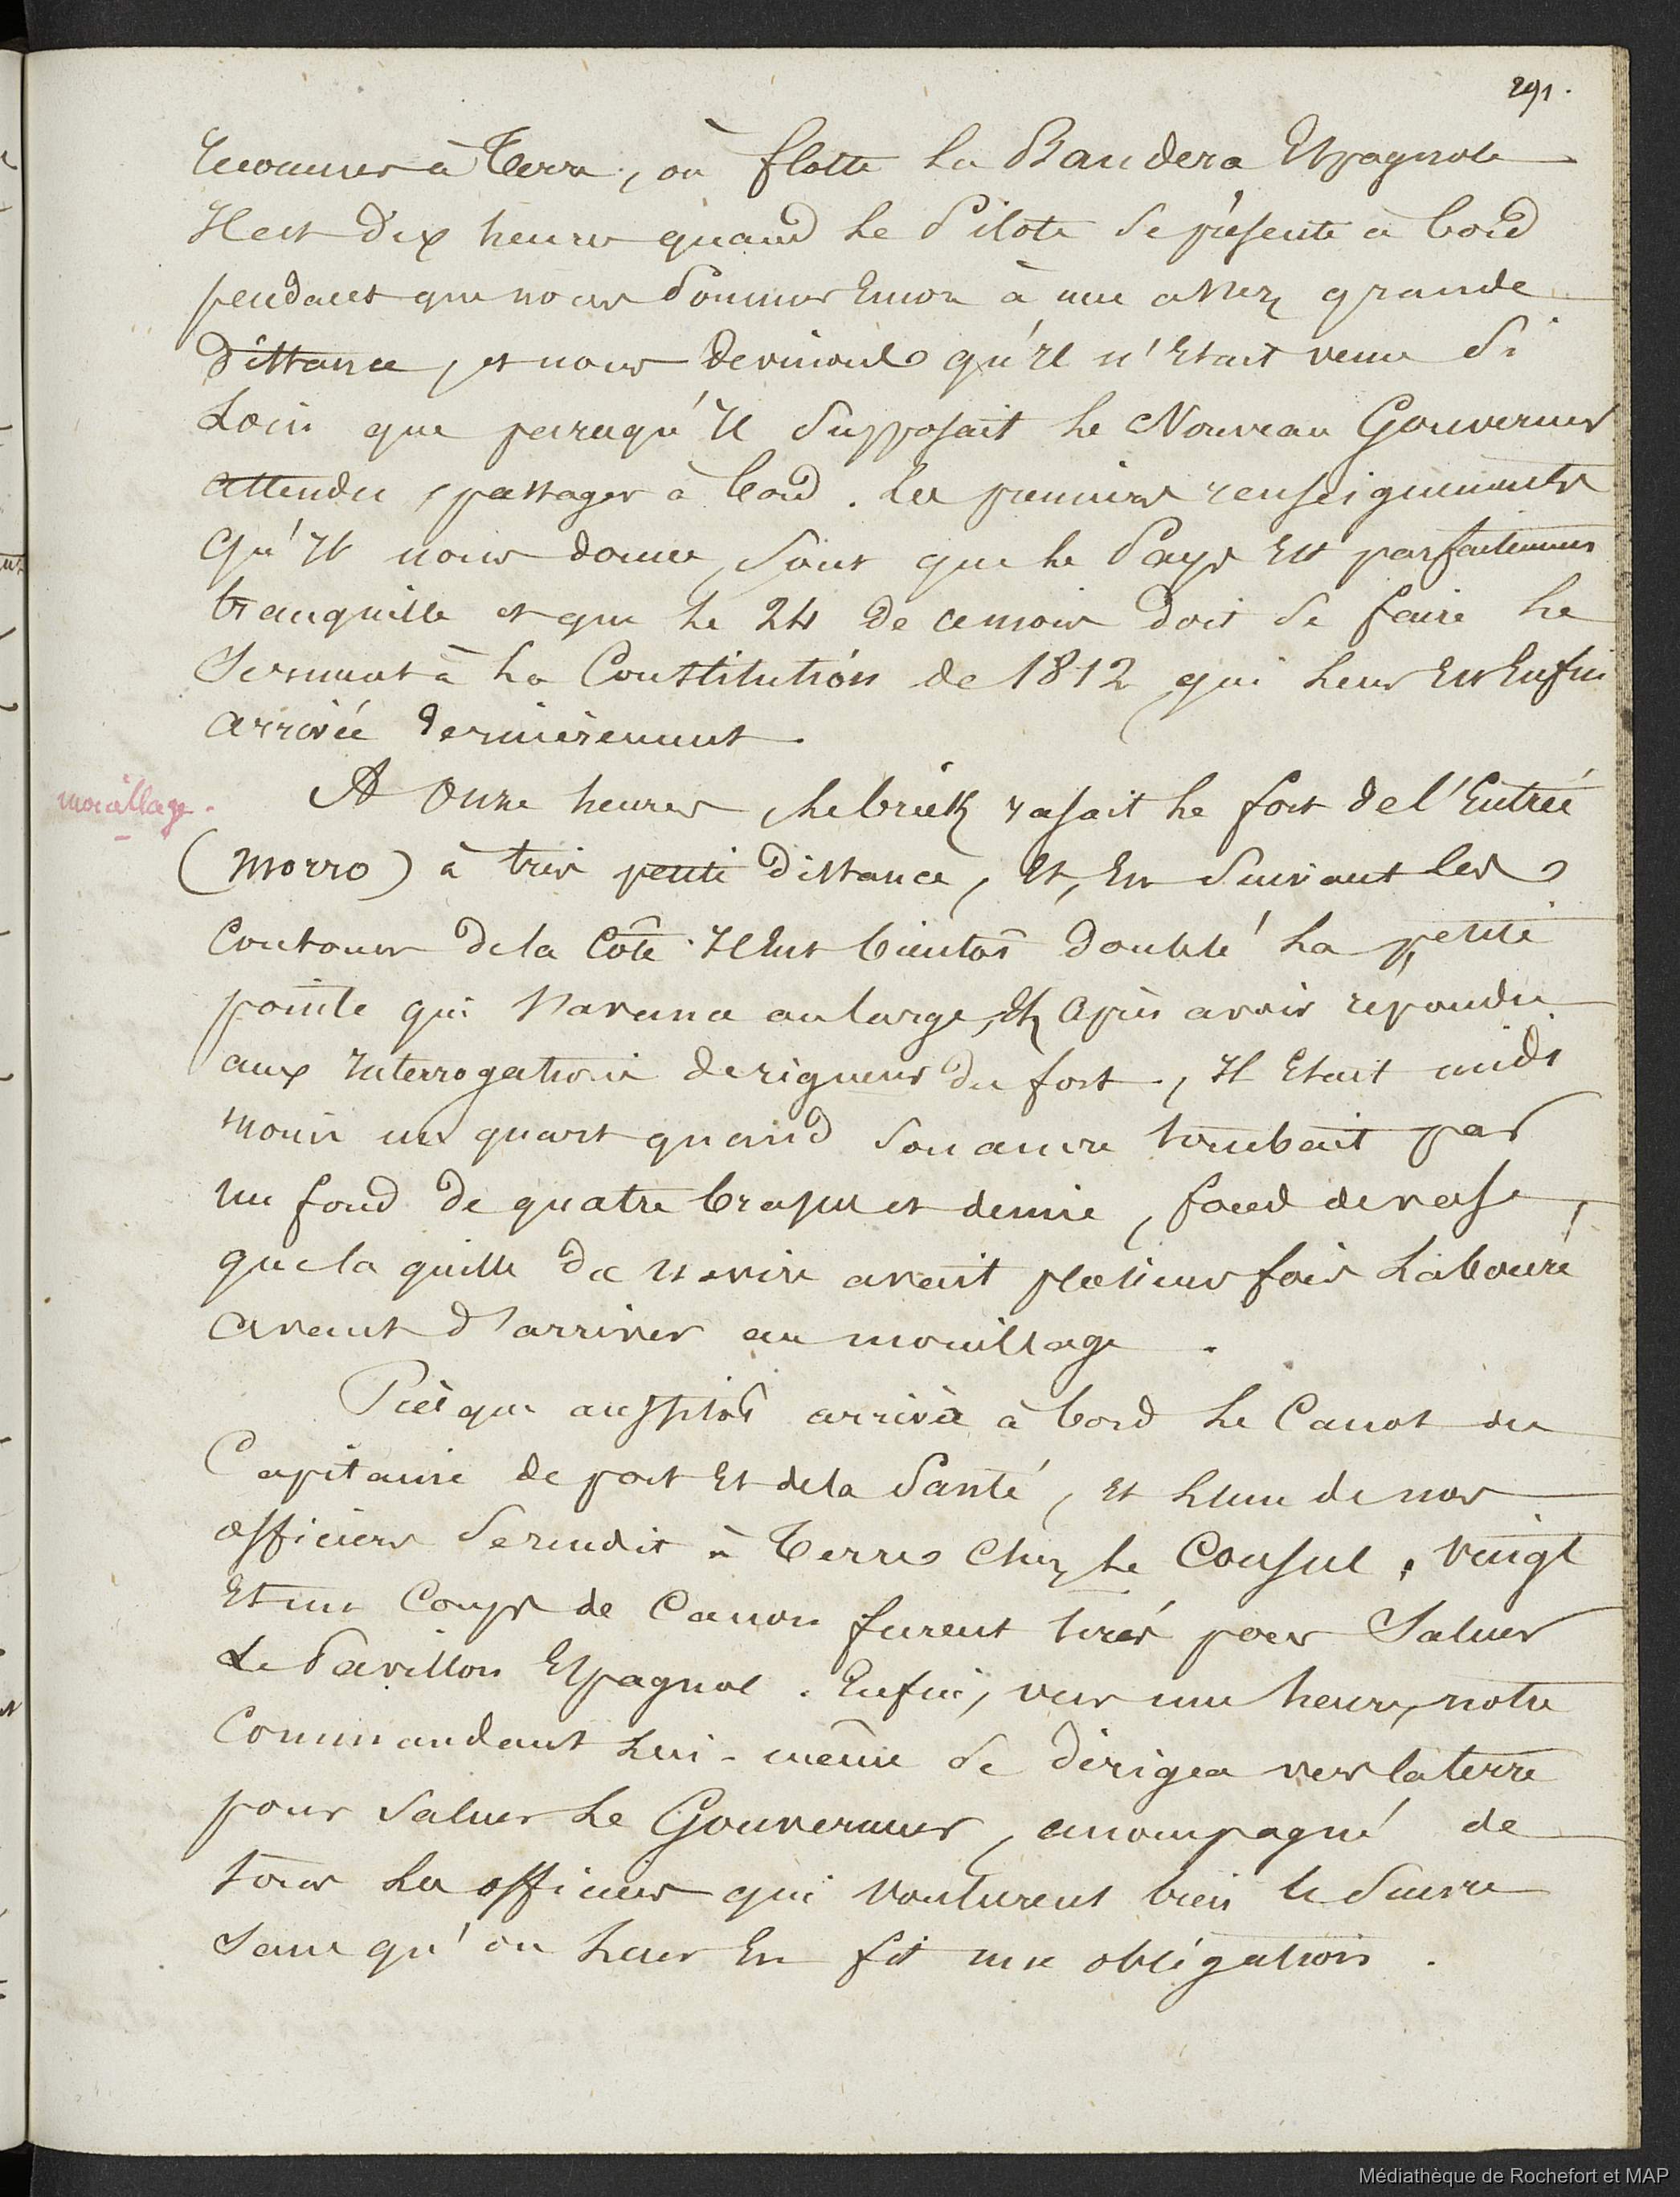 291.
reconnus à Terre, où flotte la Bandera Espagnole
Il est dix heures quand le Pilote se présente à bord
pendant que nous sommes encore à une assez grande
distance, et nous devinons qu'il n'était venu si
Loin que parcequ'il supposait le Nouveau Gouverneur
attendu, passager à bord. Les premiers renseignements
qu'il nous donne, sont que le Pays est parfaitement
tranquille et que le 24 de ce mois doit se faire le
Serment à la Constitution de 1812 qui leur est enfin
arrivée dernièrement.
mouillage.
A onze heures, le brick rasait le fort de l'Entrée
(Morro) à très petite distance, et, en suivant les
contours de la Côte il eut bientôt doublé la petite
pointe qui s'avance au large, et après avoir repondu
aux interrogatoire de rigueur du fort, il était midi
moins un quart quand son ancre tombait par
un fond de quatre brasses et demie, fond de vase,
que la quille du navire avait plusieurs fois Labouré
avant d'arriver au mouillage.
Presque aussitôt arriva à bord le Canot du
Capitaine de port et de la Santé, et l'un de nos
officiers se rendit à Terre chez le Consul. Vingt
et un Coups de Canon furent tirés pour Saluer
Le Pavillon Espagnol. Enfin, vers une heure, notre
Commandant lui-même se dirigea vers la terre
pour saluer le Gouverneur, accompagné de
tous les officiers qui voulurent bien le suivre
sans qu'on leur en fit une obligation.
Médiathèque de Rochefort et MAP